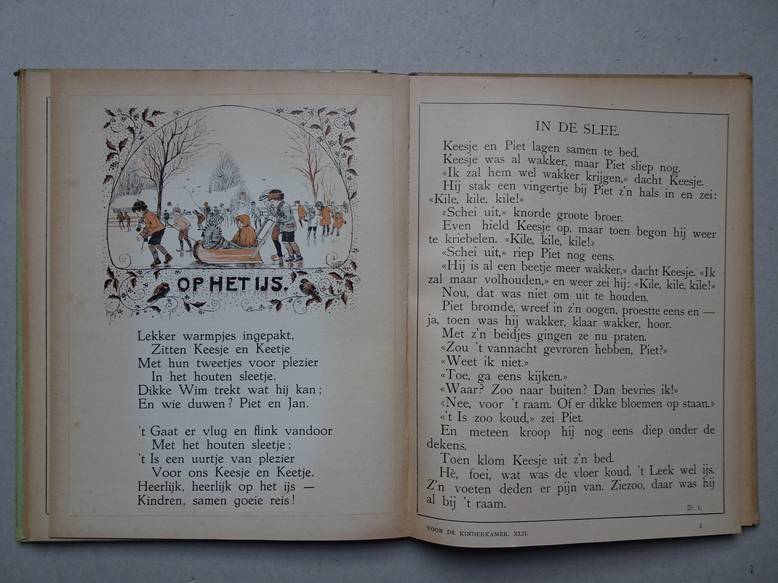 OP HET IJS.
Lekker warmpjes ingepakt,
Zitten Keesje en Keetje
Met hun tweetjes voor plezier
In het houten sleetje.
Dikke Wim trekt wat hij kan;
En wie duwen? Piet en Jan.
't Gaat er vlug en flink vandoor
Met het houten sleetje;
't Is een uurtje van plezier
Voor ons Keesje en Keetje.
Heerlijk, heerlijk op het ijs —
Kindren, samen goeie reis!
IN DE SLEE.
Keesje en Piet lagen samen te bed.
Keesje was al wakker, maar Piet sliep nog.
«Ik zal hem wel wakker krijgen,» dacht Keesje.
Hij stak een vingertje bij Piet z'n hals in en zei:
«Kile, kile, kile!»
«Schei uit,» knorde groote broer.
Even hield Keesje op, maar toen begon hij weer
te kriebelen. «Kile, kile, kile!»
«Schei uit,» riep Piet nog eens.
«Hij is al een beetje meer wakker,» dacht Keesje. «Ik
zal maar volhouden,» en weer zei hij: «Kile, kile, kile!»
Nou, dat was niet om uit te houden.
Piet bromde, wreef in z'n oogen, proestte eens en —
ja, toen was hij wakker, klaar wakker, hoor.
Met z'n beidjes gingen ze nu praten.
«Zou 't vannacht gevroren hebben, Piet?»
«Weet ik niet.»
«Toe, ga eens kijken.»
«Waar? Zoo naar buiten? Dan bevries ik!»
«Nee, voor 't raam. Of er dikke bloemen op staan.»
«'t Is zoo koud,» zei Piet.
En meteen kroop hij nog eens diep onder de
dekens.
Toen klom Keesje uit z'n bed.
Hè, foei, wat was de vloer koud. 't Leek wel ijs.
Z'n voeten deden er pijn van. Ziezoo, daar was hij
al bij 't raam.
D. 1.
VOOR DE KINDERKAMER. XLII.